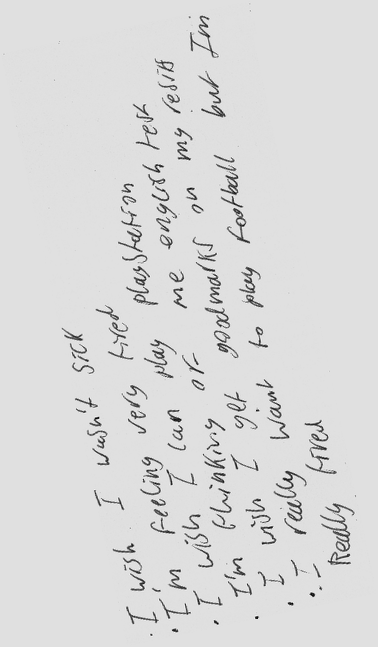 . I wish I wasn't sick
. I'm feeling very tired
. I wish I can play playstation
I'm thinking or me english test
. I wish I get goodmarks on my resits
. I really want to play football but I'm
Really tired